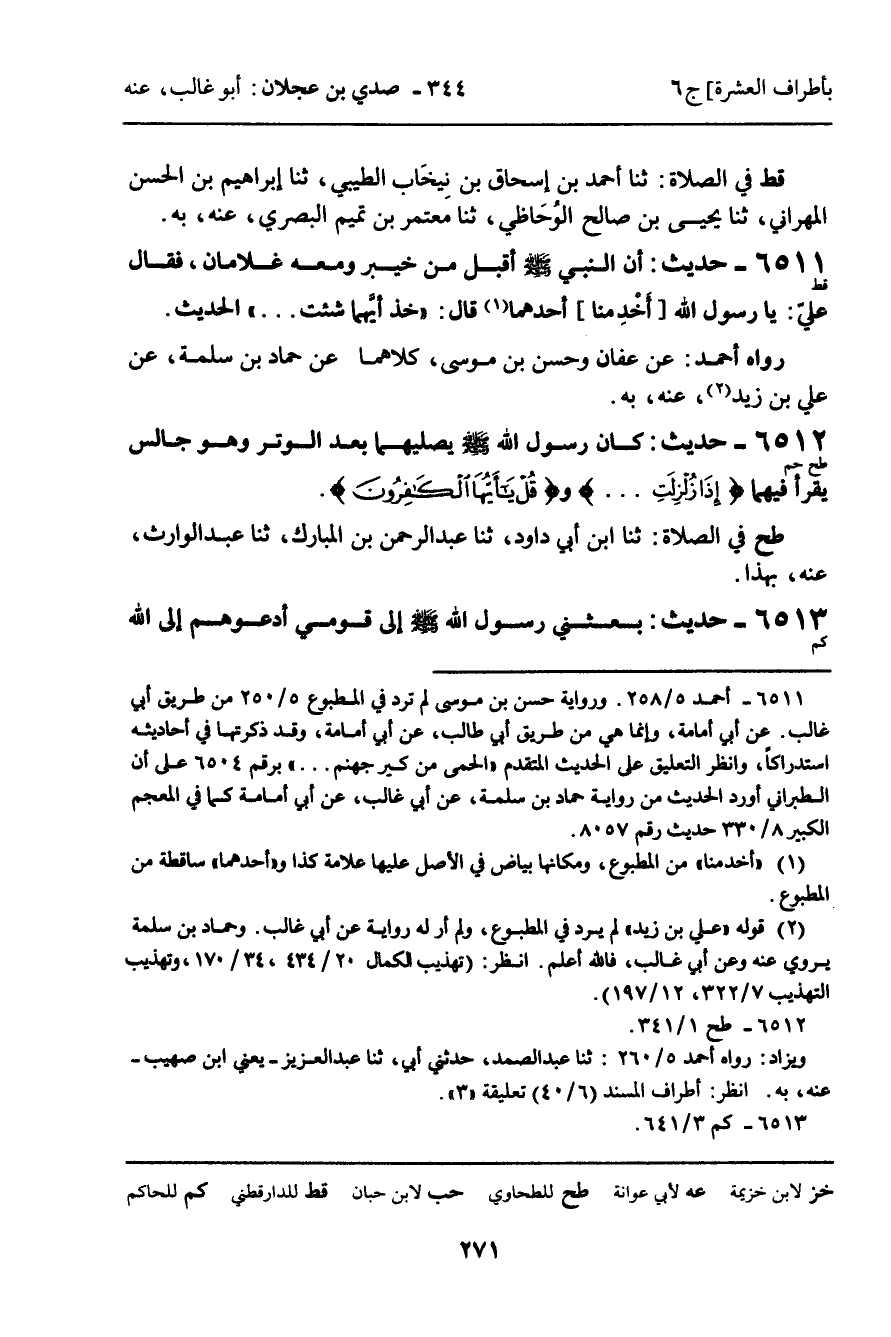 بأطراف العشرة] ج٦
٣٤٤ - صدي بن عجلان: أبو غالب، عنه
قط في الصلاة: ثنا أحمد بن إسحاق بن نِيخَاب الطيبي، ثنا إبراهيم بن الحسن
المهراني، ثنا يحيى بن صالح الوُحَاظي، ثنا معتمر بن تميم البصري، عنه، به.
٦٥١١ - حديث: أن النبي ﷺ أقبل من خيبر ومعه غلامان، فقال
قط
عليّ: يا رسول الله [أَخْدِمنا] أحدهما(١) قال: «خذ أيَّهما شئت...» الحديث.
رواه أحمد: عن عفان وحسن بن موسى، كلاهما عن حماد بن سلمة، عن
علي بن زيد(٢)، عنه، به.
٦٥١٢ - حديث: كان رسول الله ﷺ يصليهما بعد الوتر وهو جالس
طح حم
يقرأ فيهما ﴿إِذَا زُلْزِلَتِ ...﴾ و﴿قُلْ يَٰٓأَيُّهَا ٱلْكَٰفِرُونَ﴾.
طح في الصلاة: ثنا ابن أبي داود، ثنا عبدالرحمن بن المبارك، ثنا عبدالوارث،
عنه، بهذا.
٦٥١٣ - حديث: بعثني رسول الله ﷺ إلى قومي أدعوهم إلى الله
كم
٦٥١١ - أحمد ٢٥٨/٥. ورواية حسن بن موسى لم ترد في المطبوع ٢٥٠/٥ من طريق أبي
غالب. عن أبي أمامة، وإنما هي من طريق أبي طالب، عن أبي أمامة، وقد ذكرتها في أحاديثه
استدراكاً، وانظر التعليق على الحديث المتقدم «الحمى من كير جهنم...» برقم ٦٥٠٤ على أن
الطبراني أورد الحديث من رواية حماد بن سلمة، عن أبي غالب، عن أبي أمامة كما في المعجم
الكبير ٣٣٠/٨ حديث رقم ٨٠٥٧.
(١) «أخدمنا» من المطبوع، ومكانها بياض في الأصل عليها علامة كذا و«أحدهما» ساقطة من
المطبوع.
(٢) قوله «علي بن زيد» لم يرد في المطبوع، ولم أر له رواية عن أبي غالب. وحماد بن سلمة
يروي عنه وعن أبي غالب، فالله أعلم. انظر: (تهذيب الكمال ٢٠/ ٤٣٤، ٣٤/ ١٧٠، وتهذيب
التهذيب ٣٢٢/٧، ١٩٧/١٢).
٦٥١٢ - طح ٣٤١/١.
ويزاد: رواه أحمد ٢٦٠/٥ : ثنا عبدالصمد، حدثني أبي، ثنا عبدالعزيز - يعني ابن صهيب -
عنه، به. انظر: أطراف المسند (٤٠/٦) تعليقة «٣».
٦٥١٣ - كم ٦٤١/٣.
خز لابن خزيمة عه لأبي عوانة طح للطحاوي حب لابن حبان قط للدارقطني كم للحاكم
٢٧١